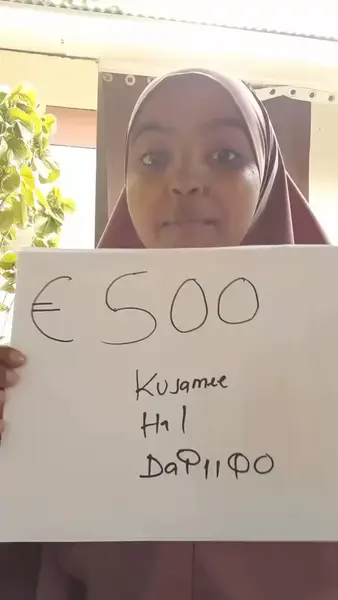 € 500
Kusamee
Hal
DaqiiQO